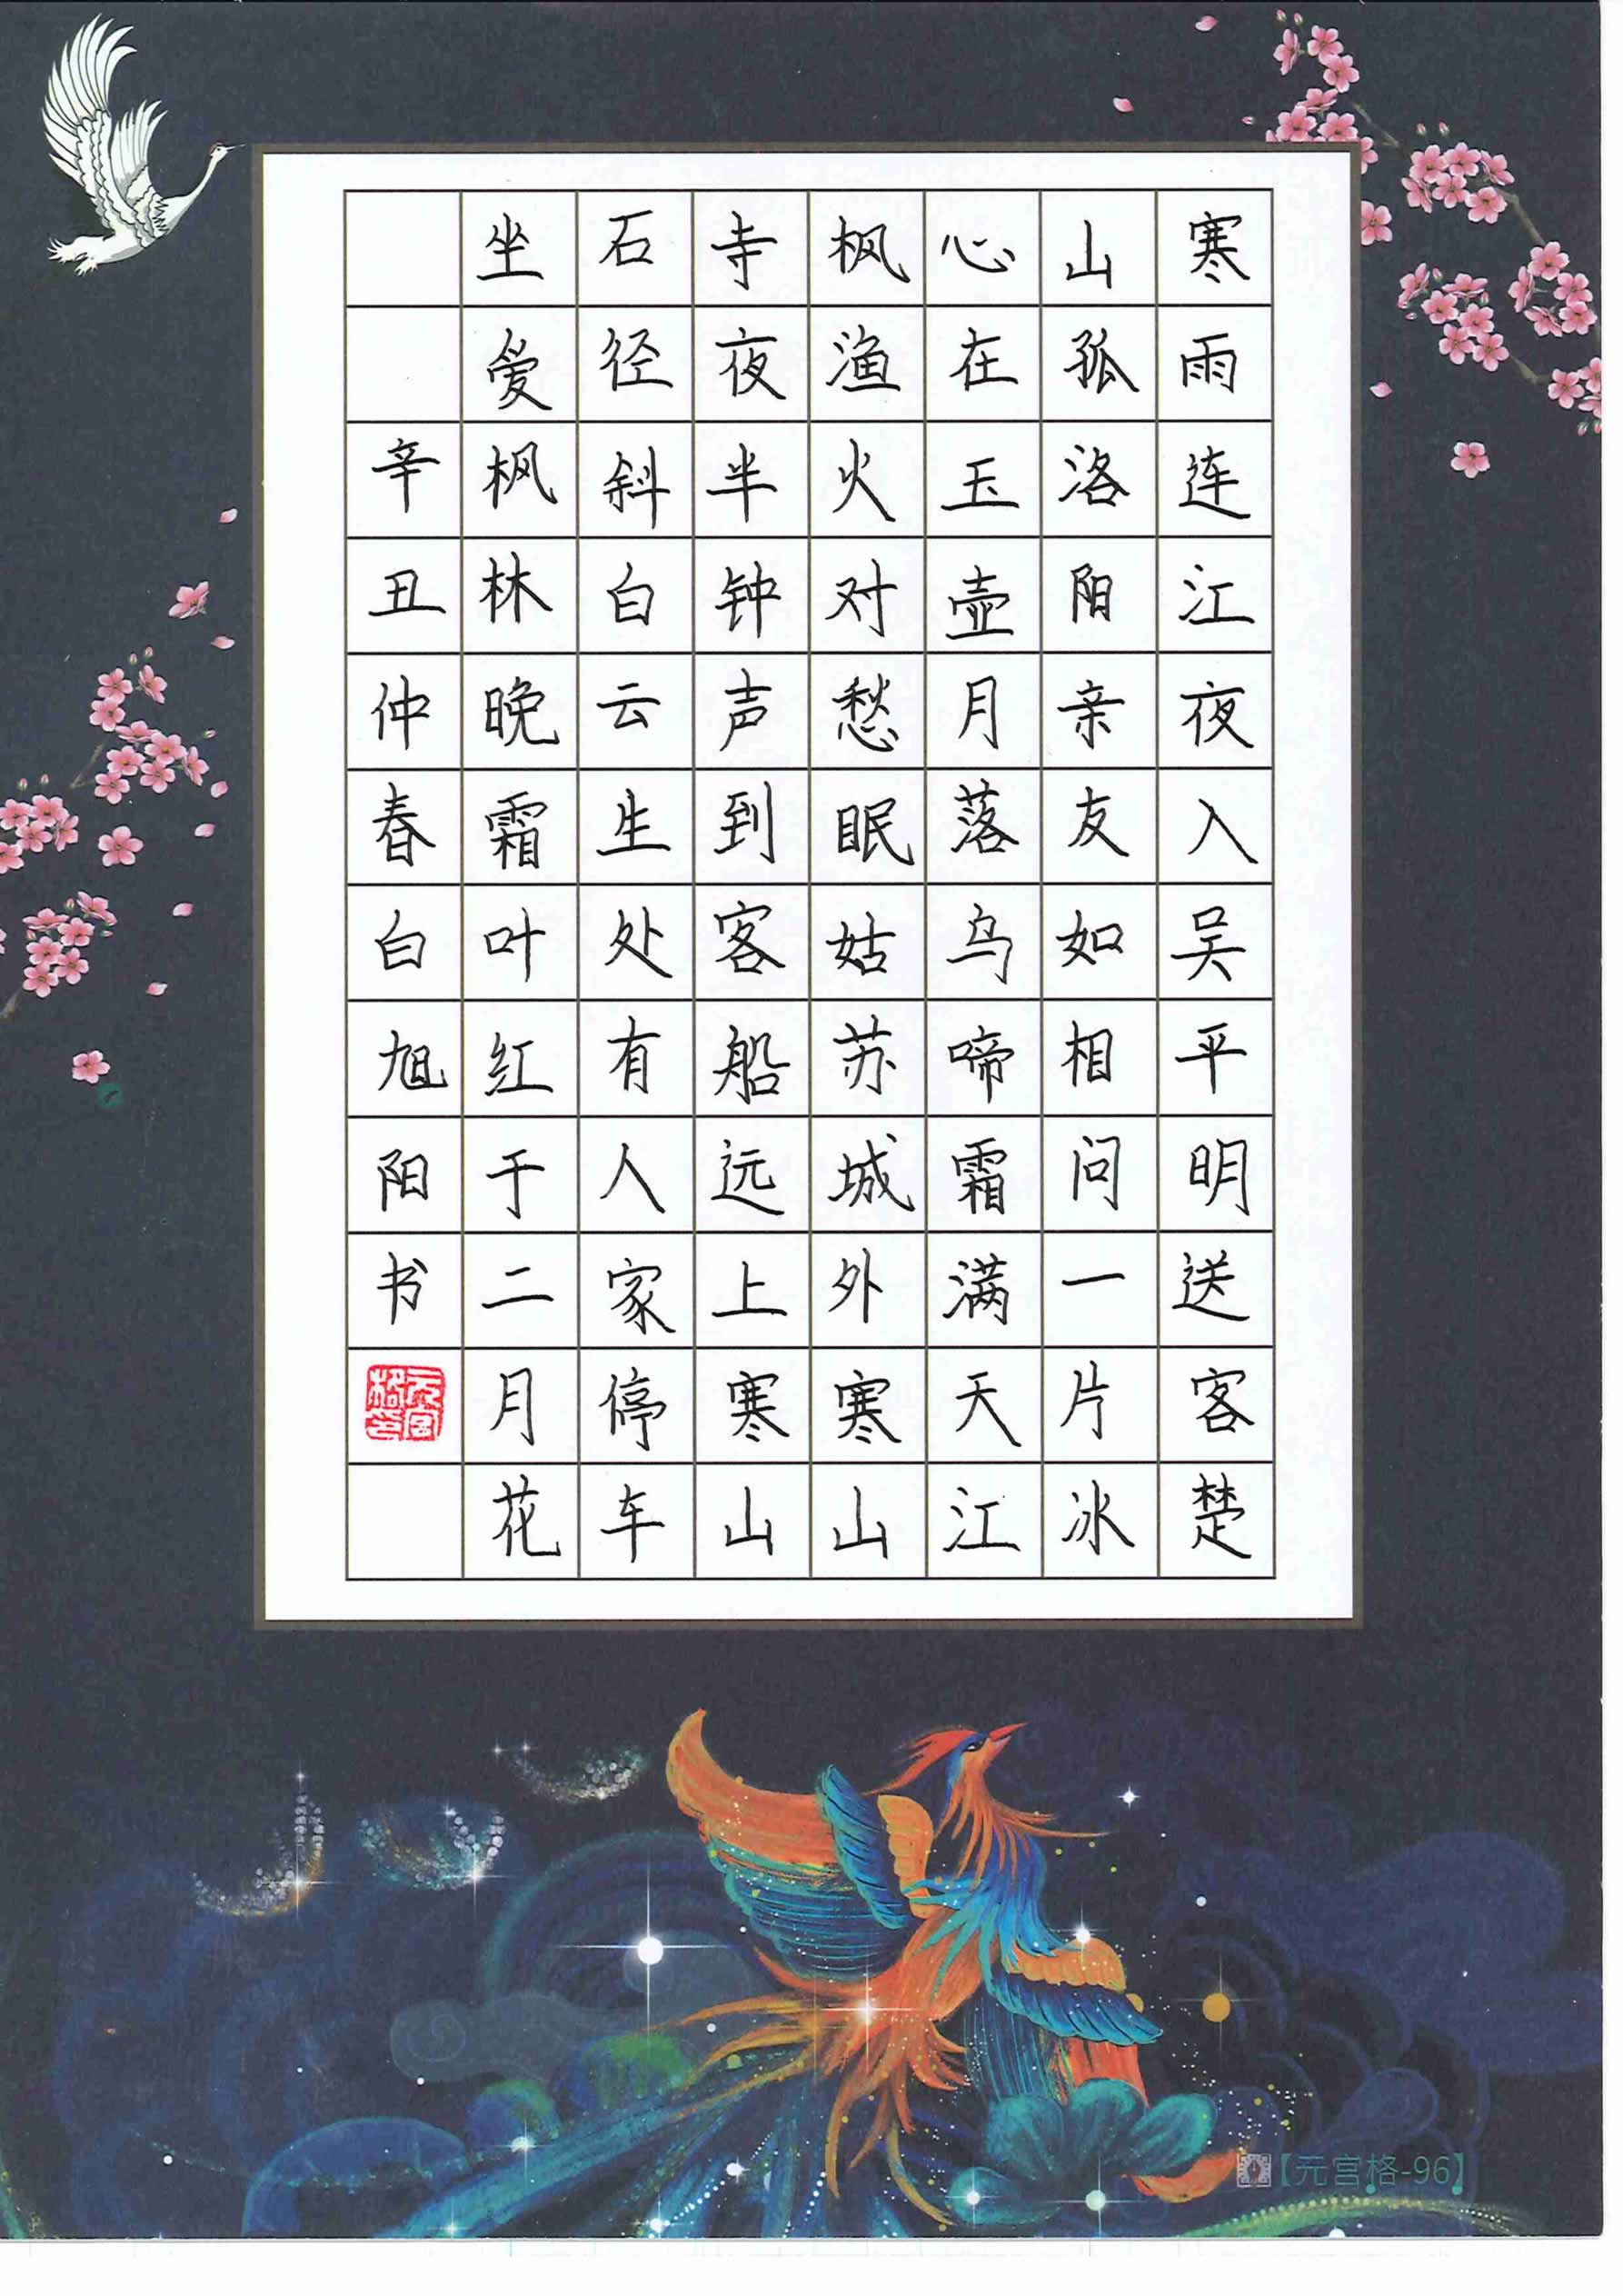 寒雨连江夜入吴平明送客楚
山孤洛阳亲友如相问一片冰
心在玉壶月落乌啼霜满天江
枫渔火对愁眠姑苏城外寒山
寺夜半钟声到客船远上寒山
石径斜白云生处有人家停车
坐爱枫林晚霜叶红于二月花
辛丑仲春白旭阳书
元宫格印
【元宫格-96】